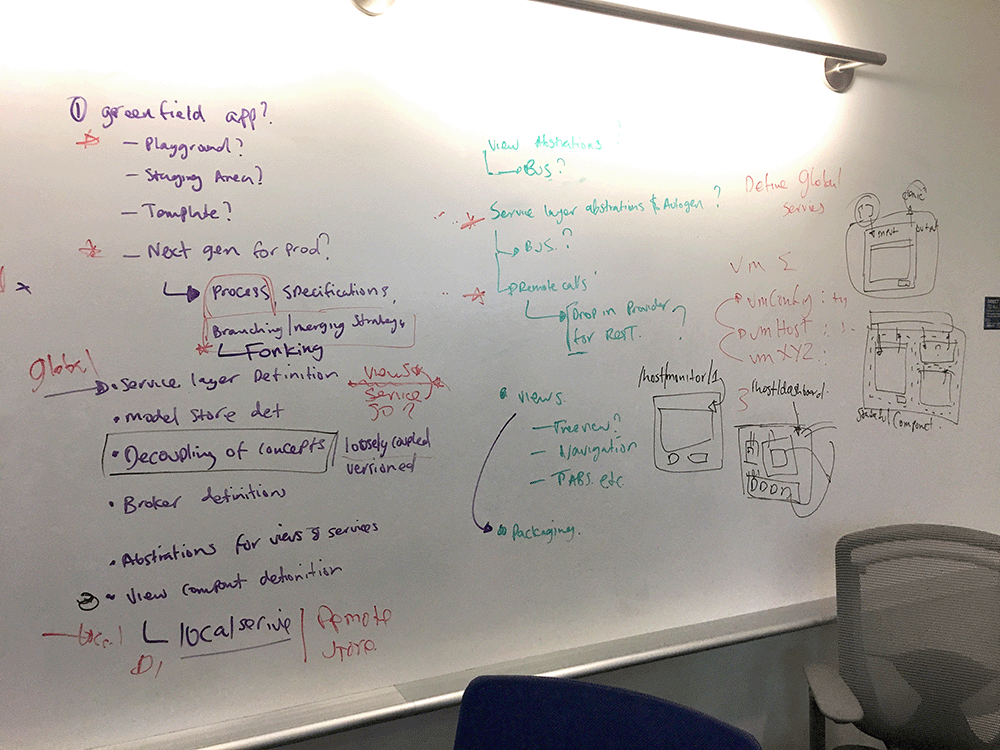 ① greenfield app?
— Playground?
— Staging Area?
— Template?
— Next gen for prod?
process specifications,
Branching / merging strategy
Forking
Global
• Service layer Definition
views
Service
• Model Store def
• Decoupling of concepts
loosely coupled
versioned
• Broker definition
• Abstrations for views & services
② • View compont
Local
localservie
Remote
Store
D,
View Abstrations?
BUS?
Service layer abstrations & Autogen?
BUS?
Remote calls
Drop in Provider
for REST.
?
• views
— Treeview?
— Navigation
— TABS. etc.
Packaging.
Define Global
Services
Vm {
vmConfig :
vmHost :
vmXYZ :
}
/hostmonitor/1
/host/dashboard
input
output